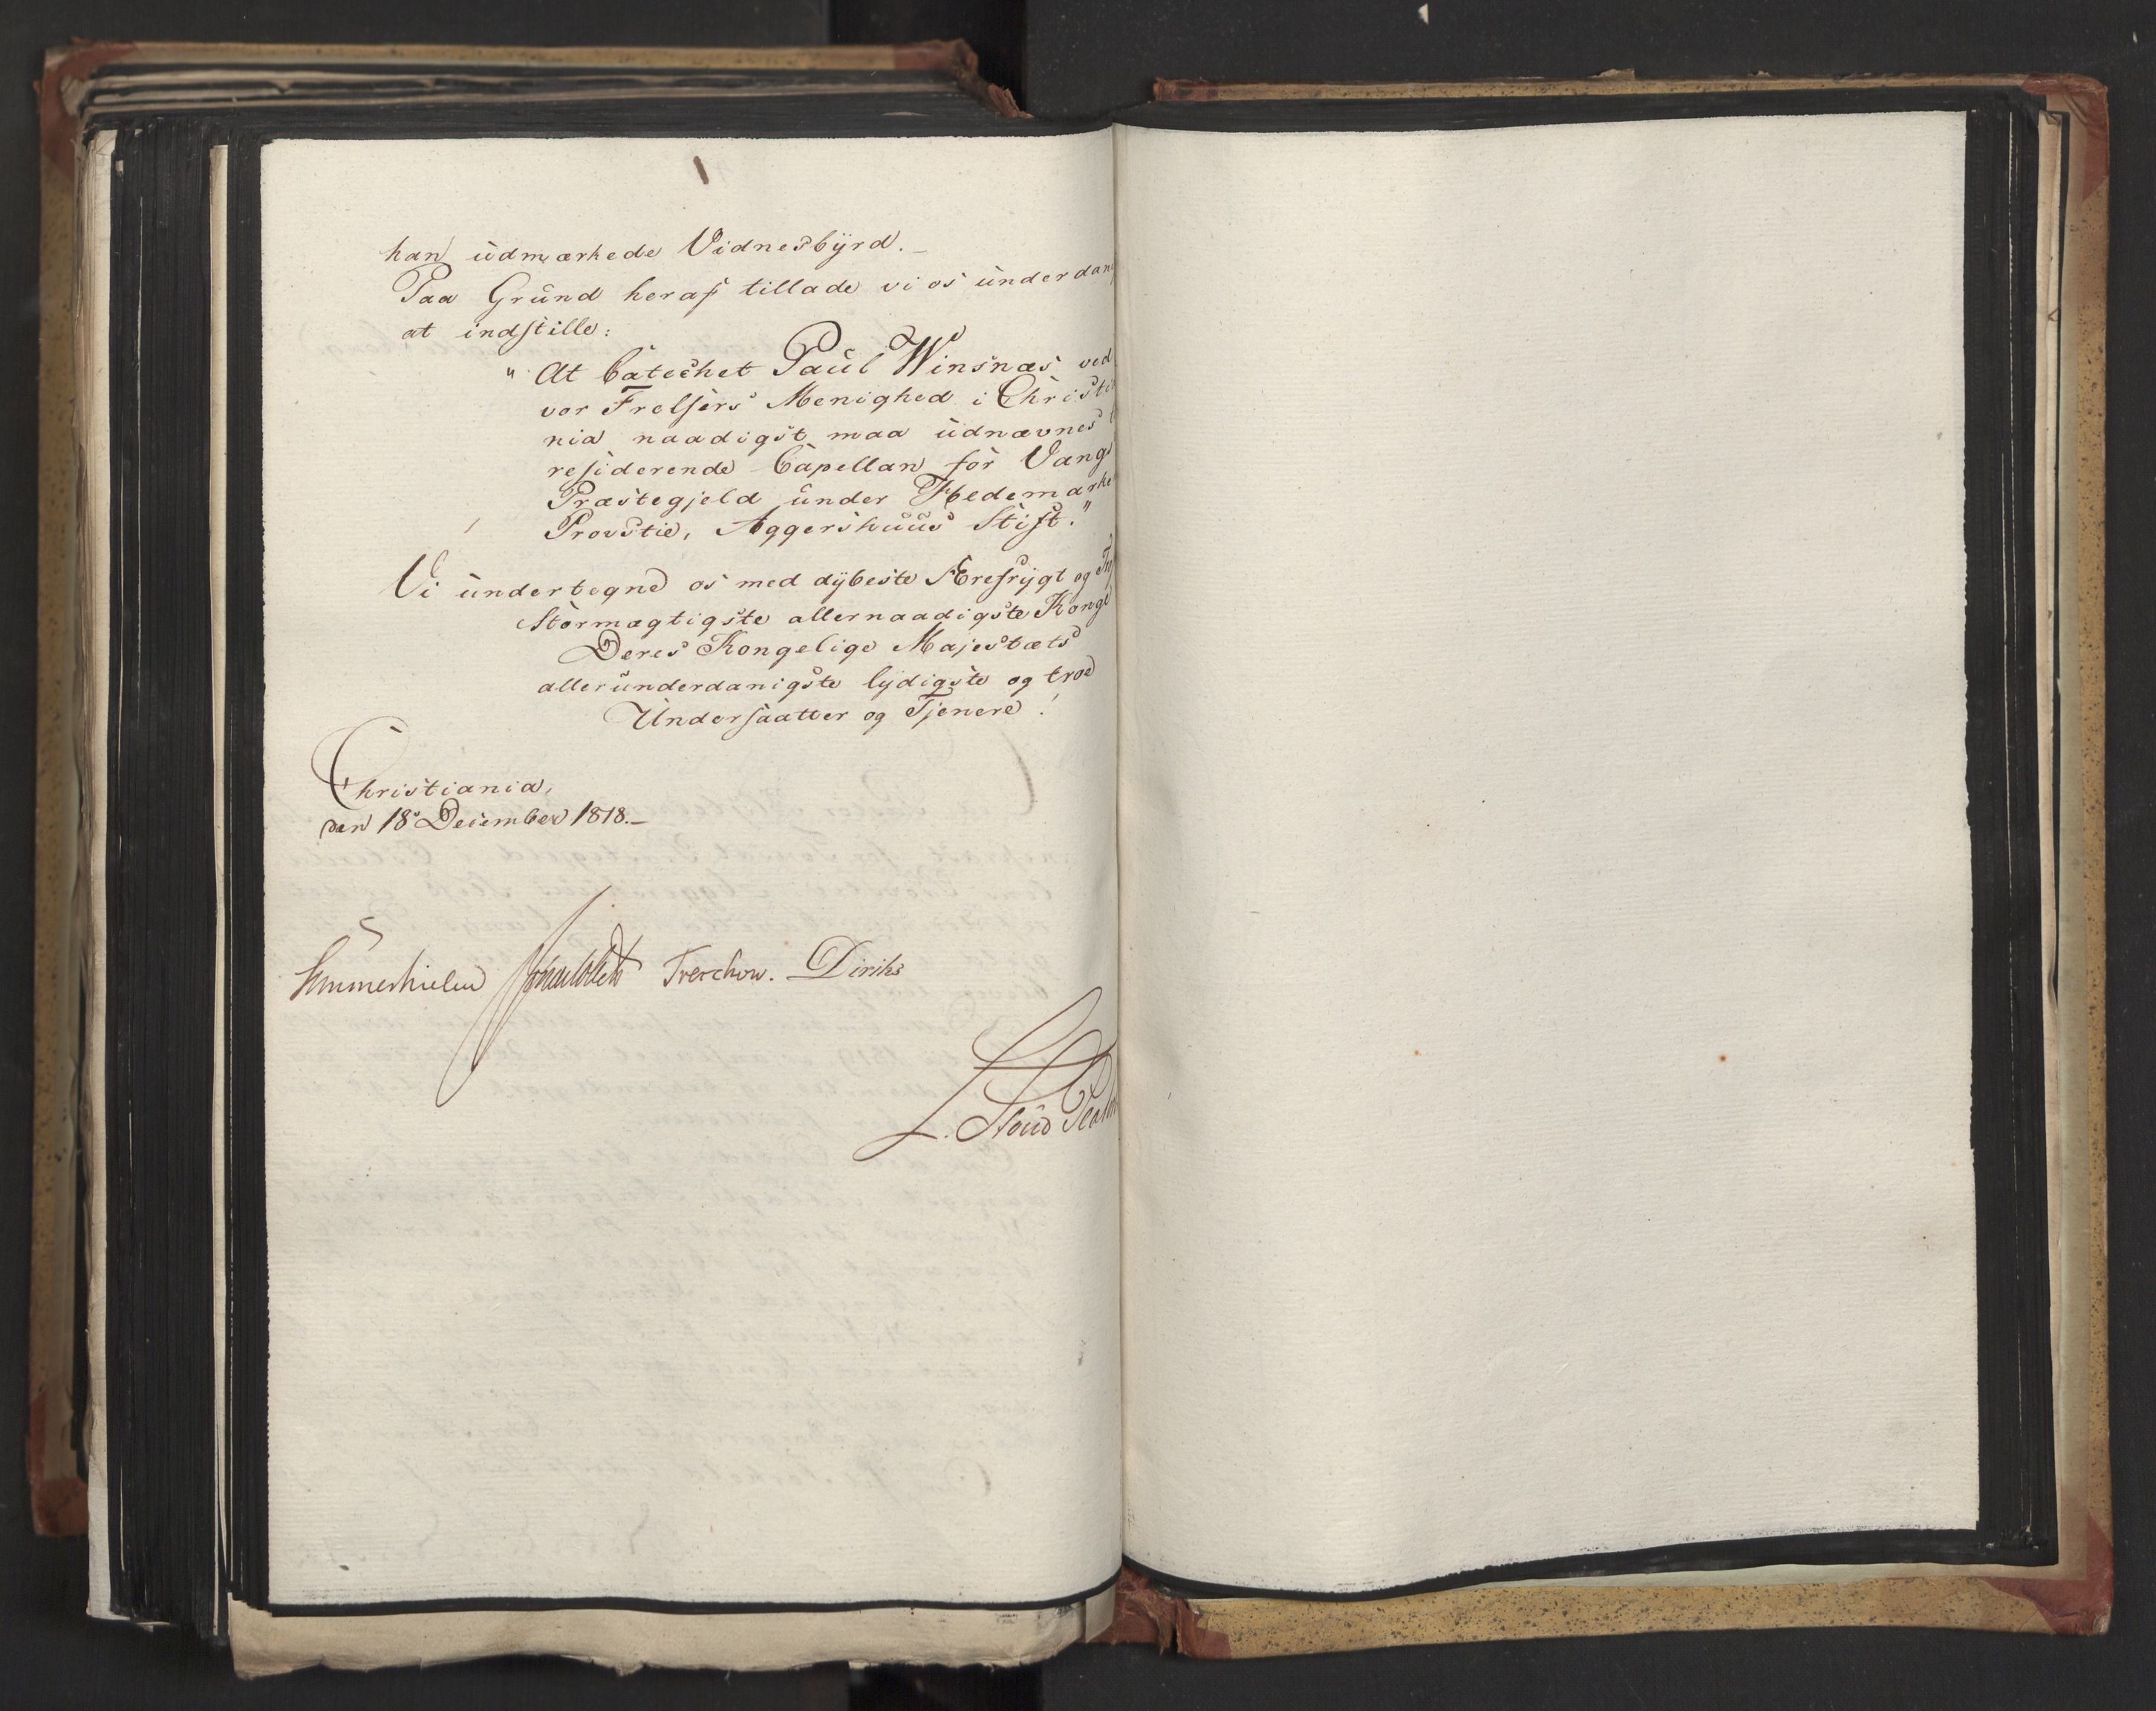 han udmærkede Vidnesbyrd. –
Paa Grund heraf tillade vi os underdan
at indstille:
" At Catechet Paul Winsnæs ved
vor Frelsers Menighed i Christi
nia naadigst maa udnævnes t
residerende Capellan for Vangs
Præstegjeld under Hedemarke
Provstie, Aggershuus Stift."
Vi undertegne os med dybeste Ærefrygt og
Stormægtigste allernaadigste Konge
Deres Kongelige Majestæts
allerunderdanigste lydigste og troe
Undersaatter og Tjenere!
Christiania,
den 18 December 1818. –
Sommerhielm Treschow. Diriks
L. Stoud Plat